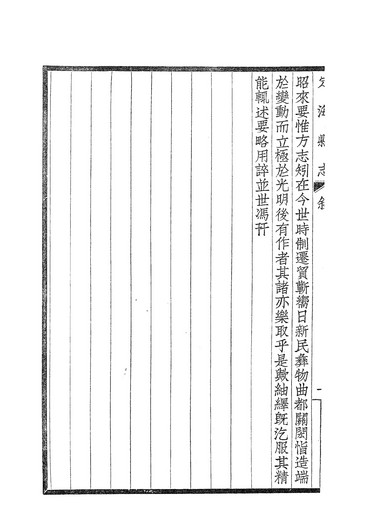 定海縣志 敘
昭來要惟方志矧在今世時制遷貿嶄嚮日新民彝物曲都關閎恉造端
於變動而立極於光明後有作者其諸亦樂取乎是歟紬繹旣汔服其精
能輒述要略用誶並世馮幵